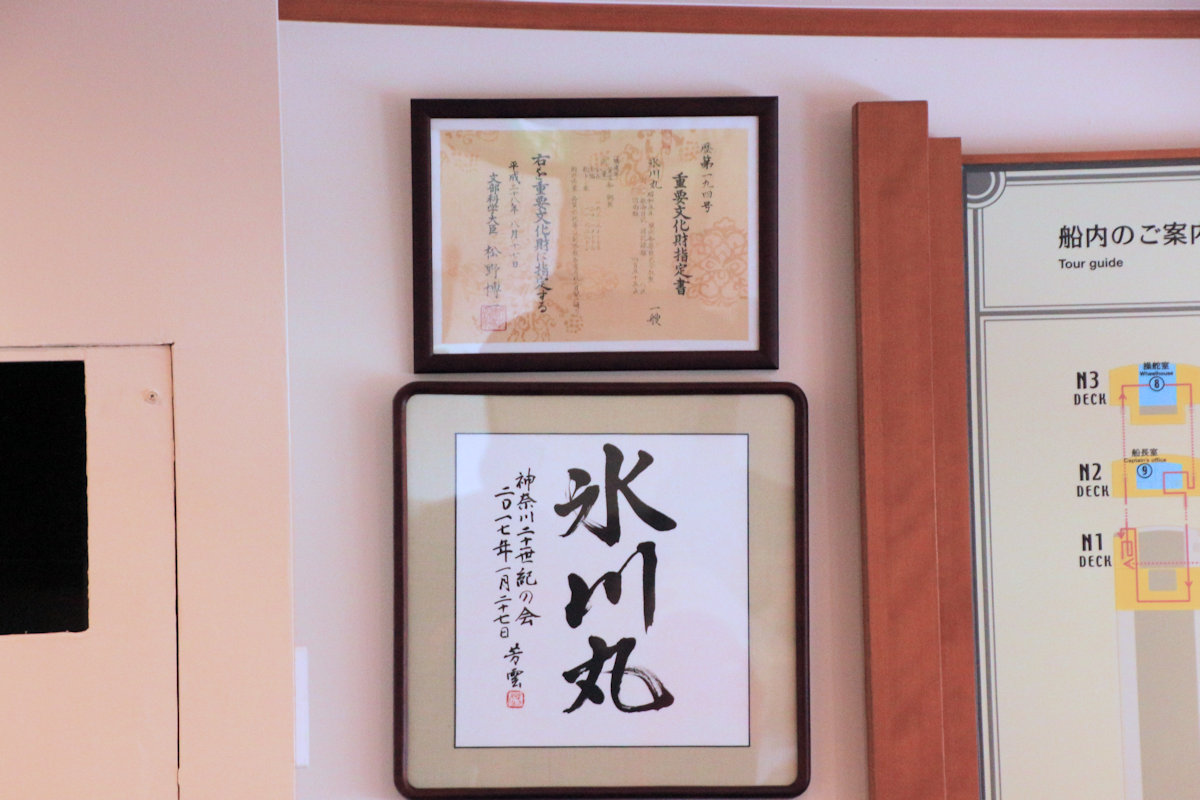 歴第一九四号
重要文化財指定書
氷川丸
一艘
右を重要文化財に指定する
平成二十八年八月十七日
文部科学大臣 松野博一
氷川丸
神奈川二十世紀の会
二〇一七年一月二十七日
芳雲
船内のご案内
Tour guide
N3
DECK
操舵室
Wheelhouse
8
N2
DECK
船長室
Captain's office
9
N1
DECK